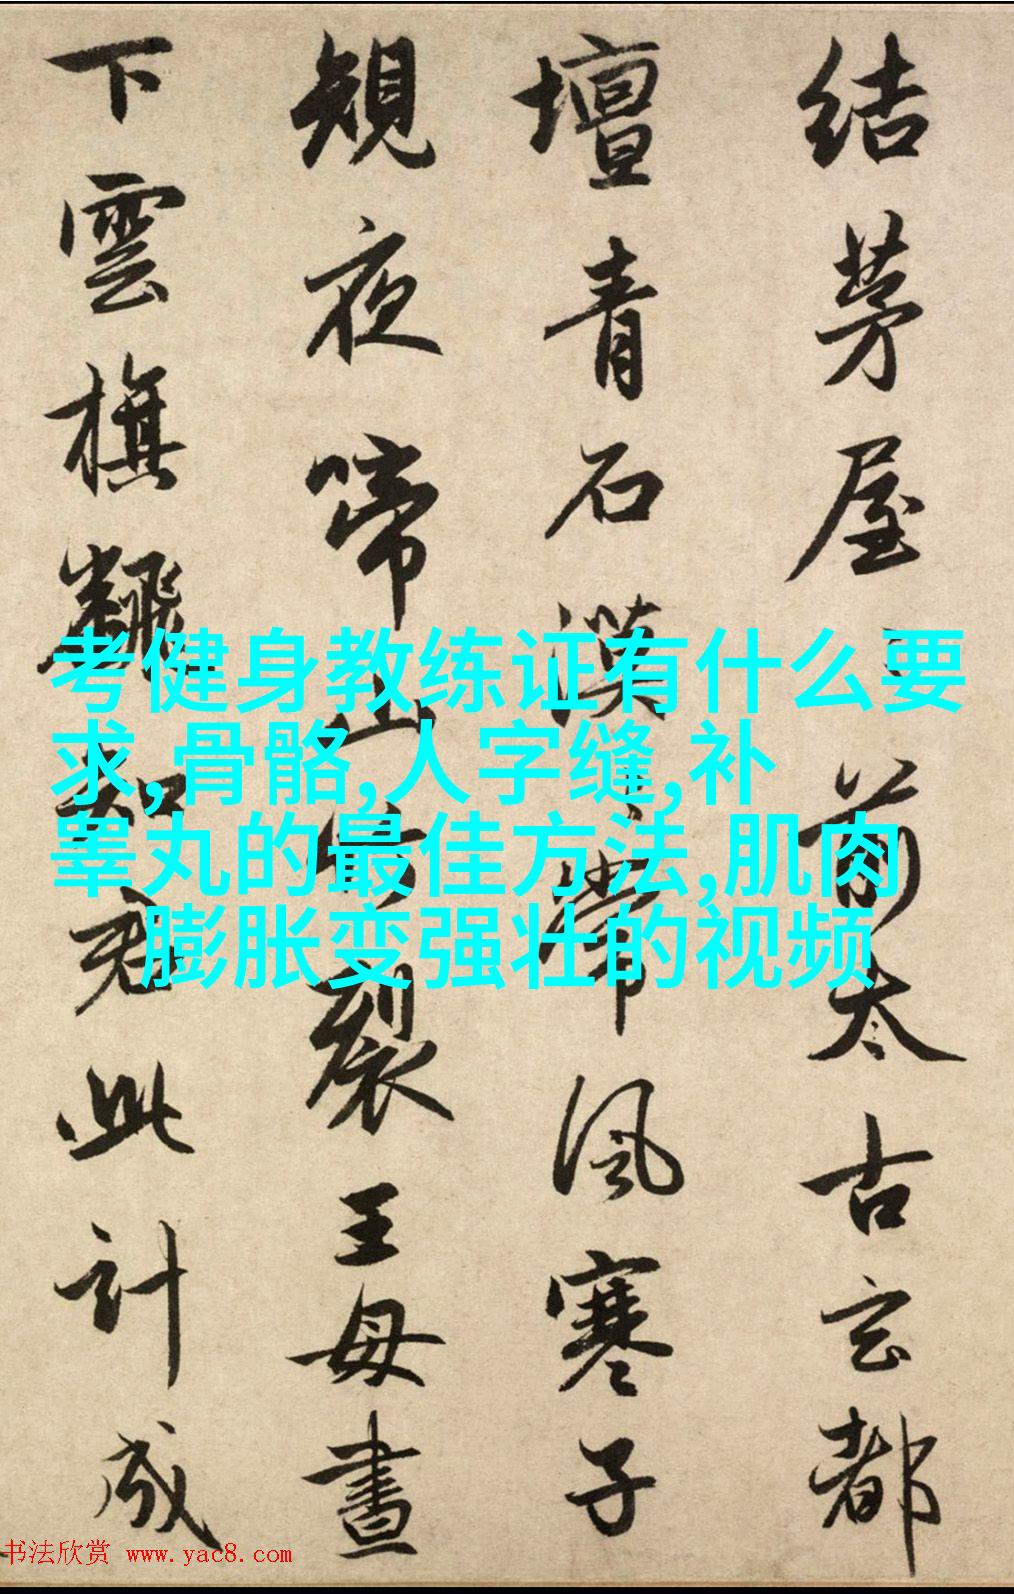 结茅屋々前太古玄都
壇青石漠々常風寒子
規夜啼山竹裂王母晝
下雲旗飜知君此計成
考健身教练证有什么要
求,骨骼,人字缝,补
睾丸的最佳方法,肌肉
膨胀变强壮的视频
书法欣赏 www.yac8.com